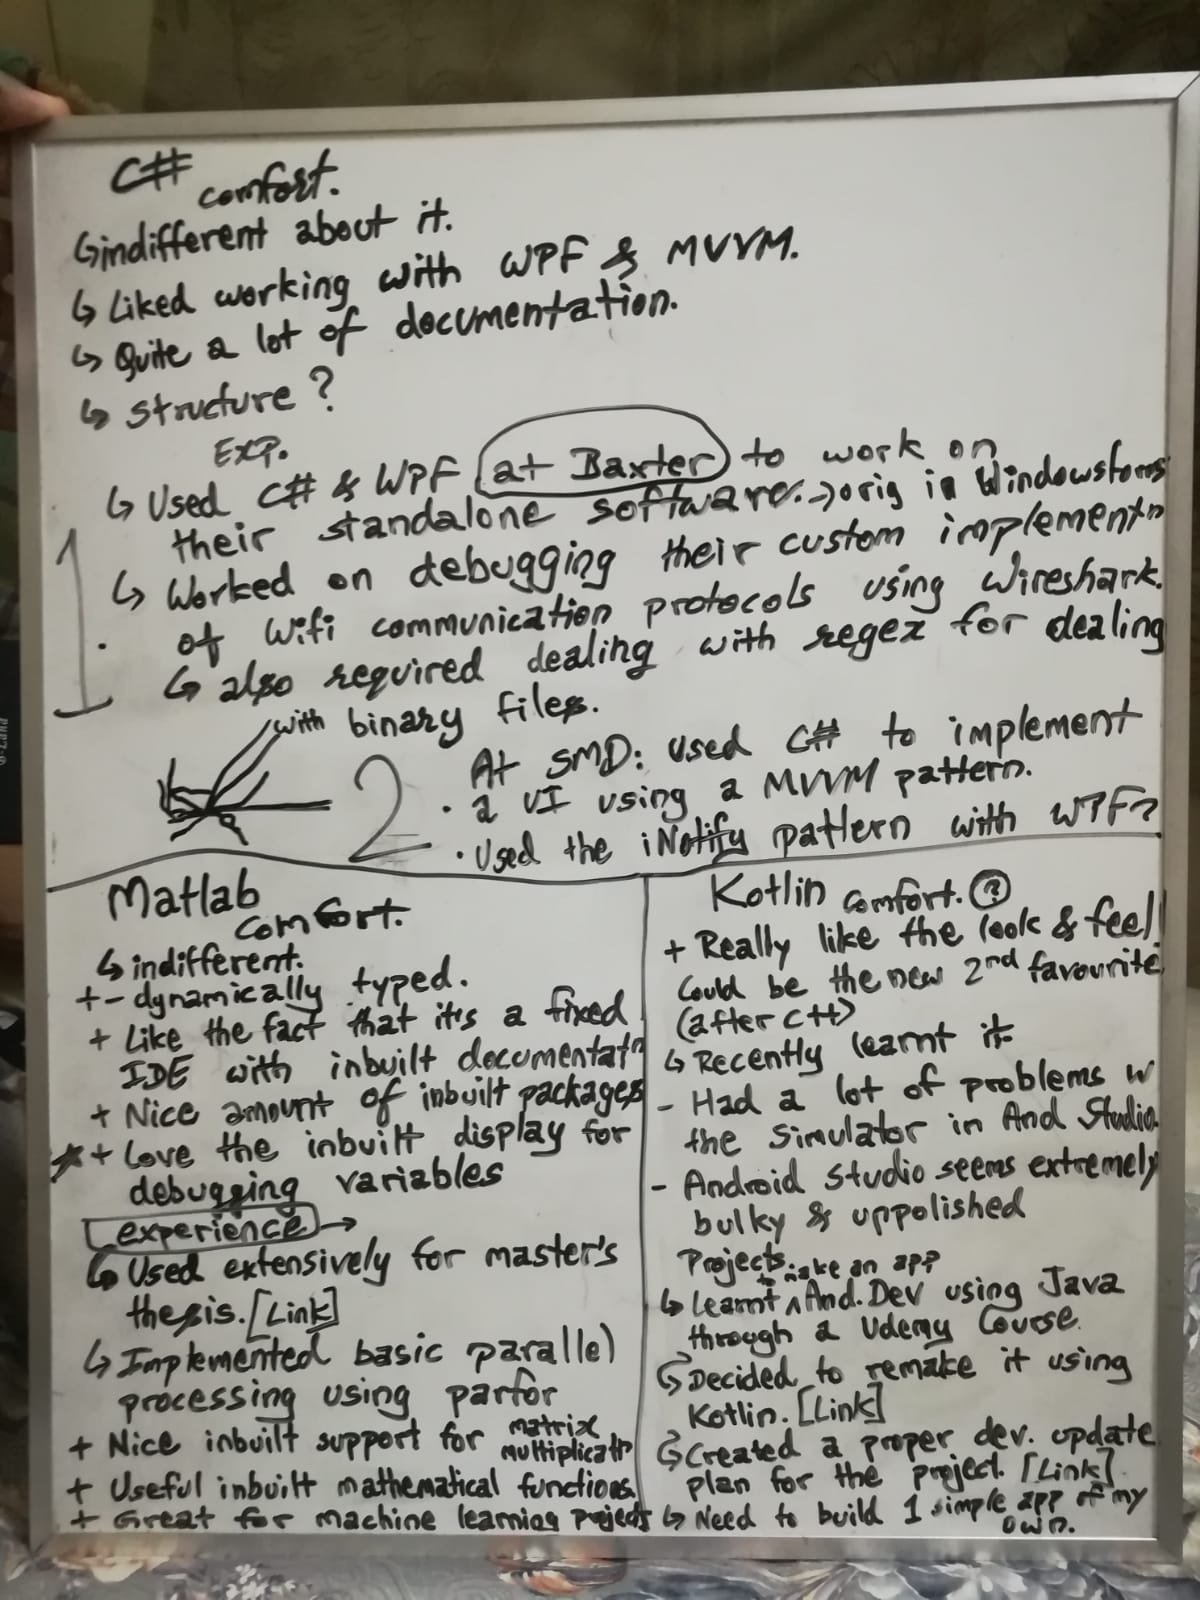 C# comfort.
↳ indifferent about it.
↳ Liked working with WPF & MVVM.
↳ Quite a lot of documentation.
↳ structure?
Exp.
1.
↳ Used C# & WPF (at Baxter) to work on
their standalone software. → orig in Windowsforms
↳ Worked on debugging their custom implementn
of Wifi communication protocols using Wireshark.
↳ also required dealing with regex for dealing
with binary files.
2
At SMD: used C# to implement
• a UI using a MVVM pattern.
• Used the iNotify pattern with WPF?
Matlab
comfort.
↳ indifferent.
+- dynamically typed.
+ Like the fact that it's a fixed
IDE with inbuilt documentatn
+ Nice amount of inbuilt packages
* + Love the inbuilt display for
debugging variables
[experience] →
↳ Used extensively for master's
thesis. [Link]
↳ Implemented basic parallel
processing using parfor
+ Nice inbuilt support for matrix
multiplicatn
+ Useful inbuilt mathematical functions.
+ Great for machine learning projects
Kotlin comfort. ?
+ Really like the look & feel!
Could be the new 2nd favourite
(after C++)
↳ Recently learnt it
- Had a lot of problems w
the simulator in And Studio.
- Android Studio seems extremely
bulky & unpolished
Projects
to make an app
↳ Learnt ^ And. Dev using Java
through a Udemy Course.
↳ Decided to remake it using
Kotlin. [Link]
↳ Created a proper dev. update
plan for the project. [Link]
↳ Need to build 1 simple app of my
own.